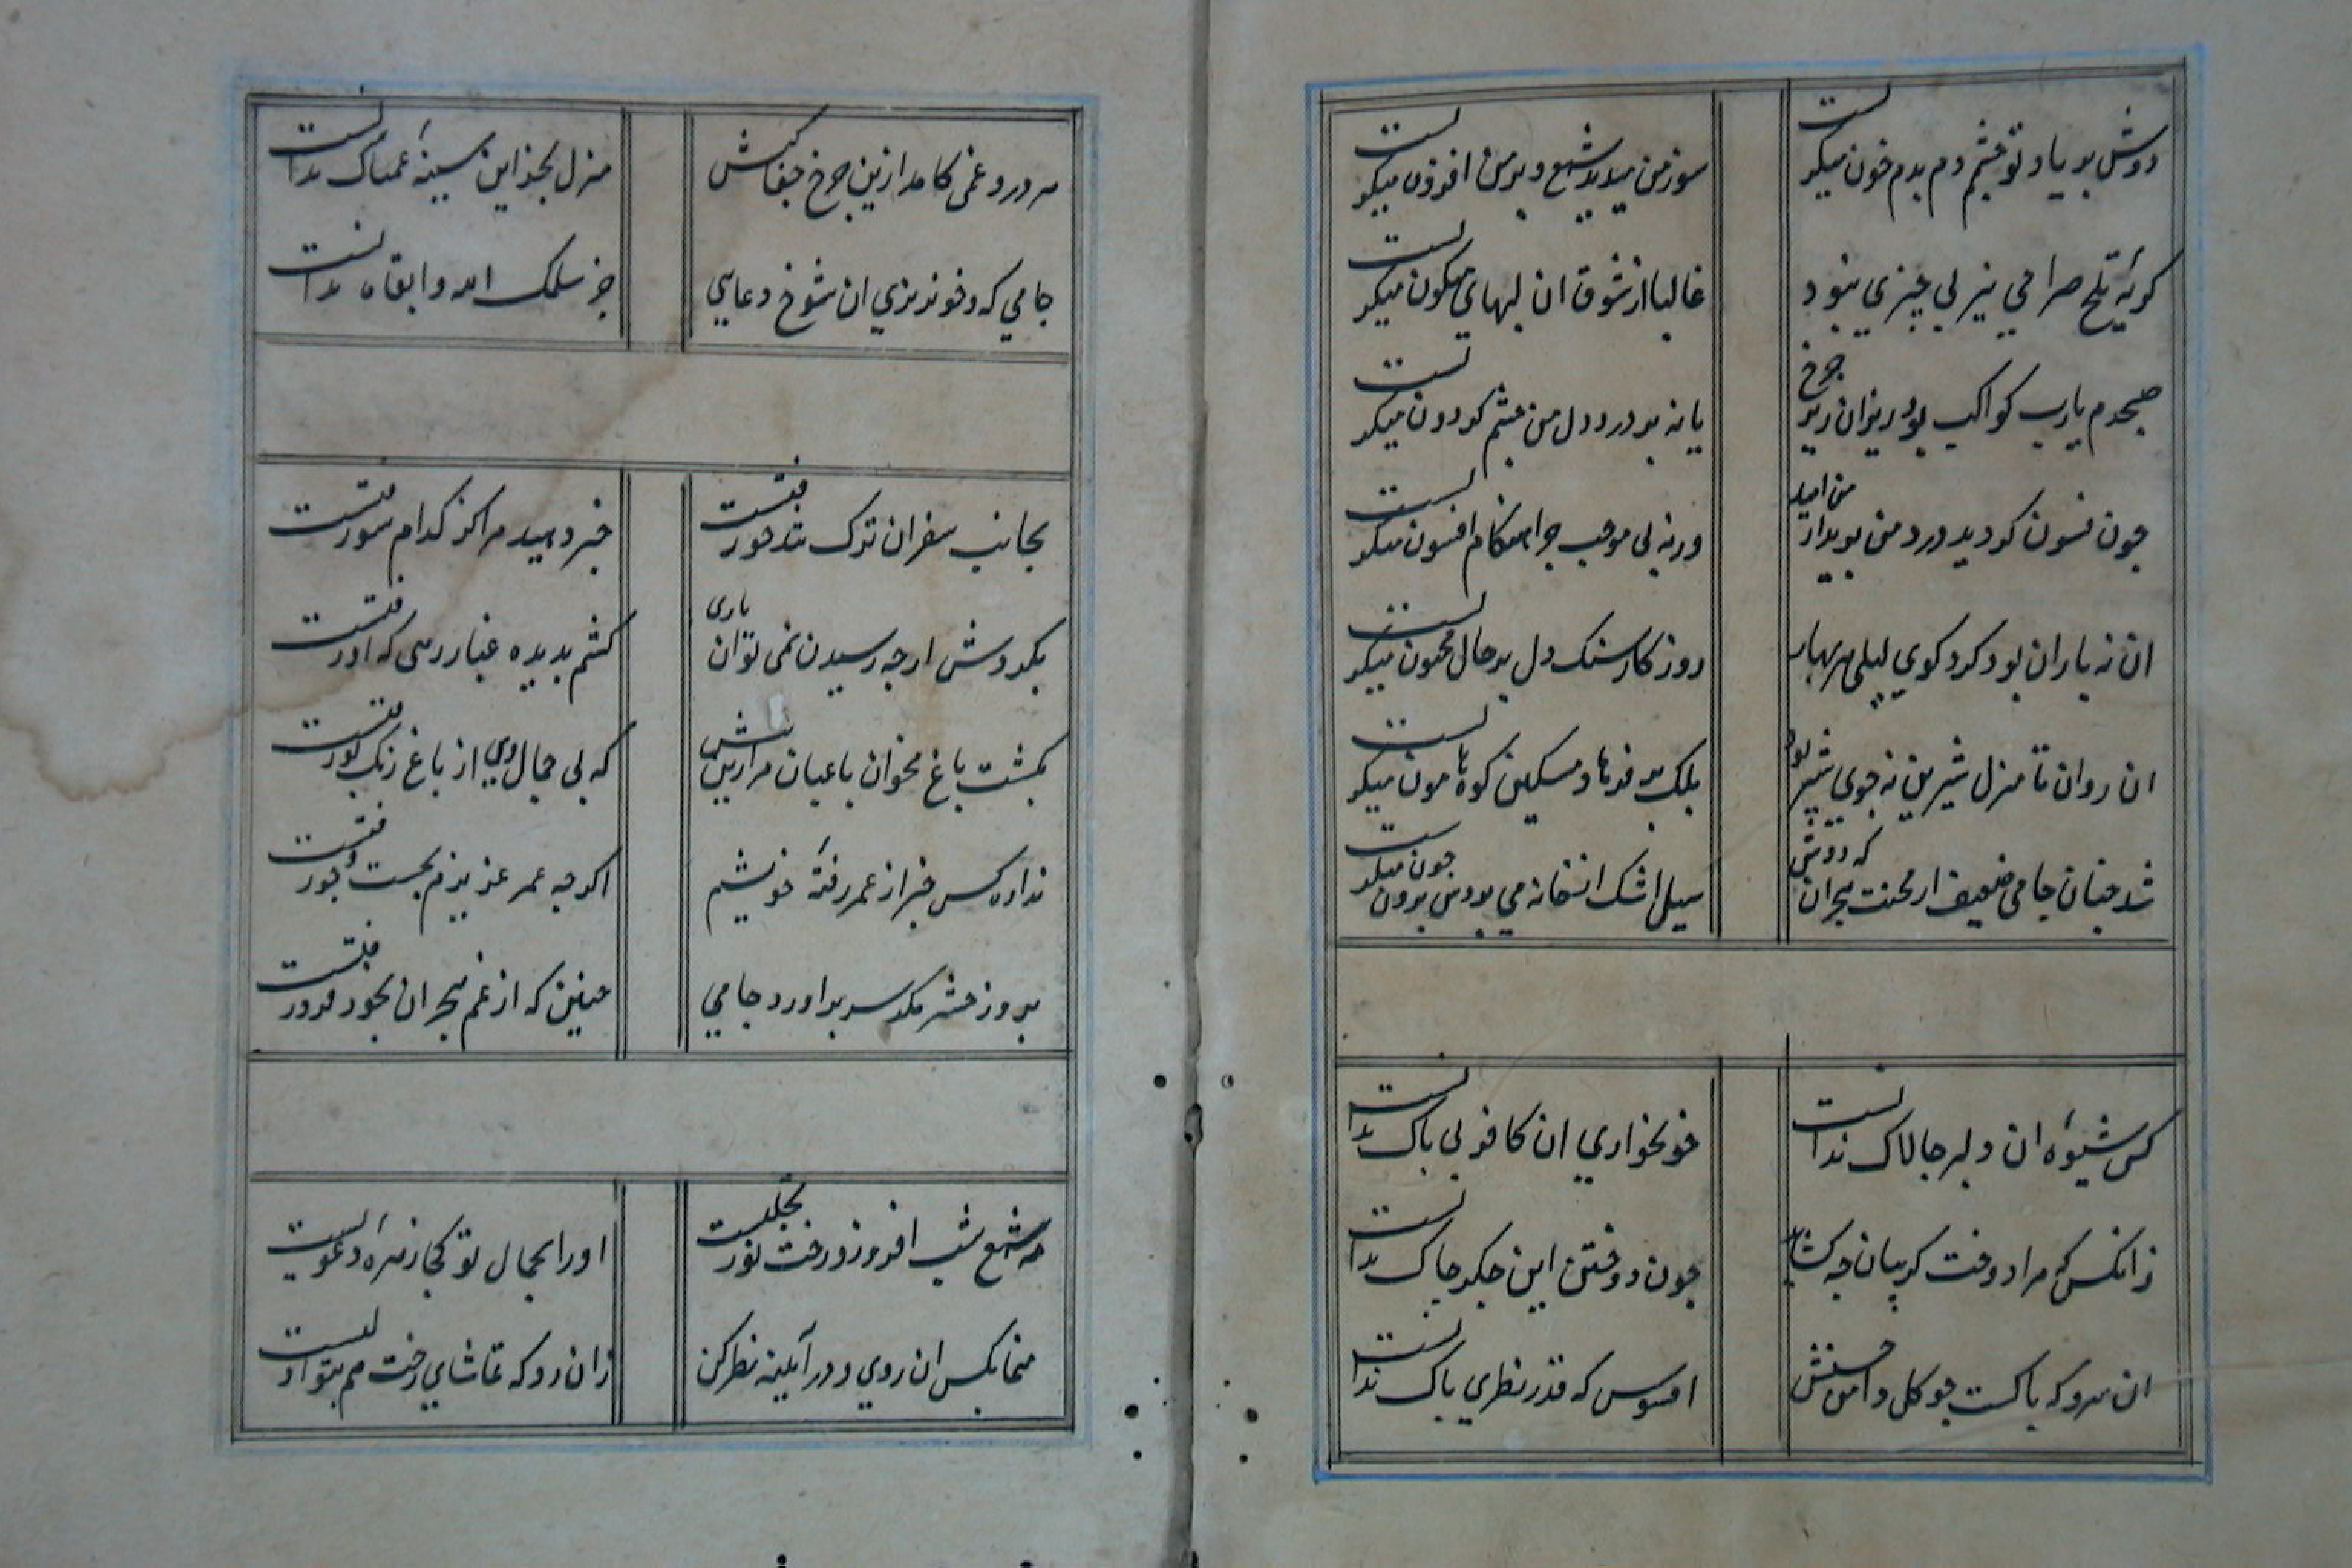 دوش بر یاد تو چشمم دم بدم خون میکریست
سوز من میدید شمع و بر من افزون میکریست
کریه تلخ صراحی نیز بی چیزی نبود
غالبا از شوق ان لبهای میکون میکریست
صبحدم یارب کواکب بود ریزان زیر چرخ
یا نه بر درد دل من چشم کردون میکریست
چون فسون کردید درد من بریدار من امید
ورنه بی موجب چرا هنکام افسون میکریست
ان نه باران بود کرد کوی لیلی هر بهار
روزکار سنک دل بر حال مجنون میکریست
ان روان تا منزل شیرین نه جوی شیر بود
بلک بر فرهاد مسکین کوه هامون میکریست
شد چنان جامی ضعیف از محنت هجران که دوش
سیل اشک از خانه می بردش برون چون میکریست
کس شیوه ان دلبر چالاک ندانست
خونخواری ان کافر بی باک ندانست
زانکس که مرا دوخت کریبان چه کشاید
چون دوختن این جکر چاک ندانست
ان سرو که پاکست چو کل دامن حسنش
افسوس که قدر نظری پاک ندانست
هر درد و غمی کامد ازین چرخ جفاکش
منزل بجز این سینه غمناک ندانست
جامی که
جز سلمک الله و ابقاه ندانست
بجانب سفر ان ترک تندخو رفتست
خبر دهید مرا کز کدام سو رفتست
بکردش ارچه رسیدن نمی توان باری
کشم بدیده غبار رهی که او رفتست
بکشت باغ مخوان باغبان مرا زین بیش
که بی جمال وی از باغ رنک و بو رفتست
ندارد کس خبر از عمر رفته خویشم
اکرچه عمر عزیزم بجست و جو رفتست
بروز حشر مکر سر براورد جامی
چنین که از غم هجران بخود فرو رفتست
مه شمع شب افروز و رخت نور تجلیست
او را بجمال تو کجا زهره دعویست
منما بکس ان روی و در آیینه نظر کن
زان رو که تماشای رخت هم بتو اولیست